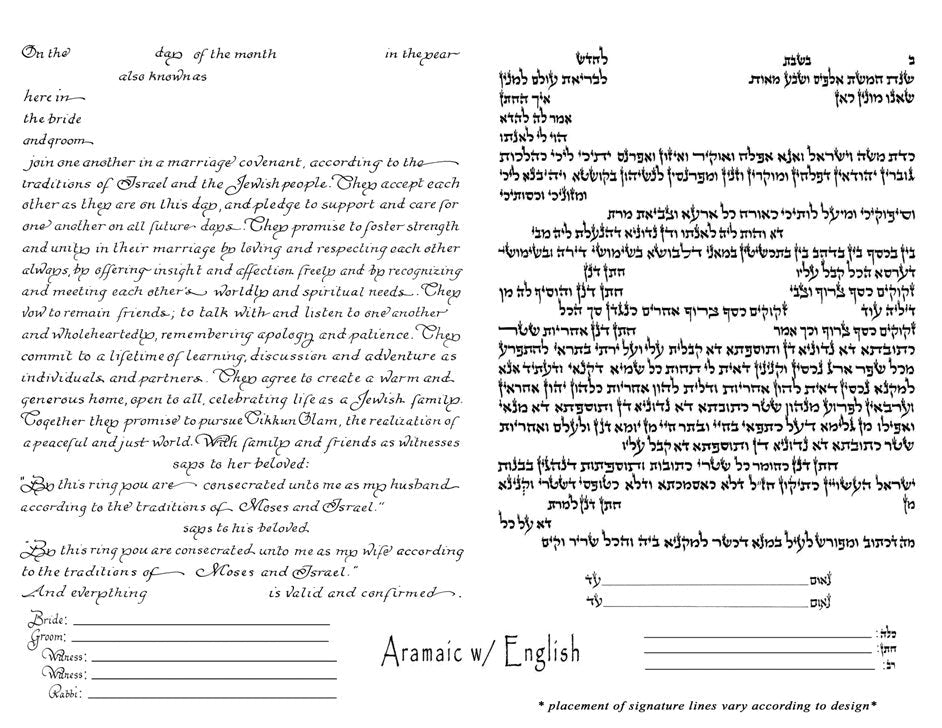 On the day of the month in the year
also known as
here in
the bride
and groom
join one another in a marriage covenant, according to the
traditions of Israel and the Jewish people. They accept each
other as they are on this day, and pledge to support and care for
one another on all future days. They promise to foster strength
and unity in their marriage by loving and respecting each other
always, by offering insight and affection freely and by recognizing
and meeting each other's worldly and spiritual needs. They
vow to remain friends; to talk with and listen to one another
and wholeheartedly, remembering apology and patience. They
commit to a lifetime of learning, discussion and adventure as
individuals and partners. They agree to create a warm and
generous home, open to all, celebrating life as a Jewish family.
Together they promise to pursue Tikkun Olam, the realization of
a peaceful and just world. With family and friends as witnesses
says to her beloved:
"By this ring you are consecrated unto me as my husband
according to the traditions of Moses and Israel."
says to his beloved
"By this ring you are consecrated unto me as my wife according
to the traditions of Moses and Israel."
And everything is valid and confirmed.
Bride:
Groom:
Witness:
Witness:
Rabbi:
ב בשבת לחדש
שנת חמשת אלפים ושבע מאות לבריאת עולם למנין
שאנו מונין כאן איך החתן
אמר לה להדא
הוי לי לאנתו
כדת משה וישראל ואנא אפלח ואוקיר ואיזון ואפרנס יתיכי ליכי כהלכות
גוברין יהודאין דפלחין ומוקרין וזנין ומפרנסין לנשיהון בקושטא ויהיבנא ליכי
ומזוניכי וכסותיכי
וסיפוקיכי ומיעל לותיכי כאורח כל ארעא וצביאת מרת
דא והות ליה לאנתו ודין נדוניא דהנעלת ליה מבי
בין בכסף בין בדהב בין בתכשיטין במאני דלבושא בשימושי דירה ובשימושי
דערסא הכל קבל עליו חתן דנן
זקוקים כסף צרוף וצבי חתן דנן והוסיף לה מן
דיליה עוד זקוקים כסף צרוף אחרים כנגדן סך הכל
זקוקים כסף צרוף וכך אמר חתן דנן אחריות שטר
כתובתא דא נדוניא דן ותוספתא דא קבלית עלי ועל ירתי בתראי להתפרע
מכל שפר ארג נכסין וקנינין דאית לי תחות כל שמיא דקנאי ודעתיד אנא
למקנא נכסין דאית להון אחריות ודלית להון אחריות כלהון יהון אחראין
וערבאין לפרוע מנהון שטר כתובתא דא נדוניא דן ותוספתא דא מנאי
ואפילו מן גלימא דעל כתפאי בחיי ובתר חיי מן יומא דנן ולעלם ואחריות
שטר כתובתא דא נדוניא דן ותוספתא דא קבל עליו
חתן דנן כחומר כל שטרי כתובות ותוספתות דנהגין בבנות
ישראל העשויין כתיקון חז״ל דלא כאסמכתא ודלא כטופסי דשטרי וקנינא
מן חתן דנן למרת
דא על כל
מה דכתוב ומפורש לעיל במנא דכשר למקניא ביה והכל שריר וקים
נאום עד
נאום עד
כלה:
חתן:
רב:
Aramaic w/ English
* placement of signature lines vary according to design*